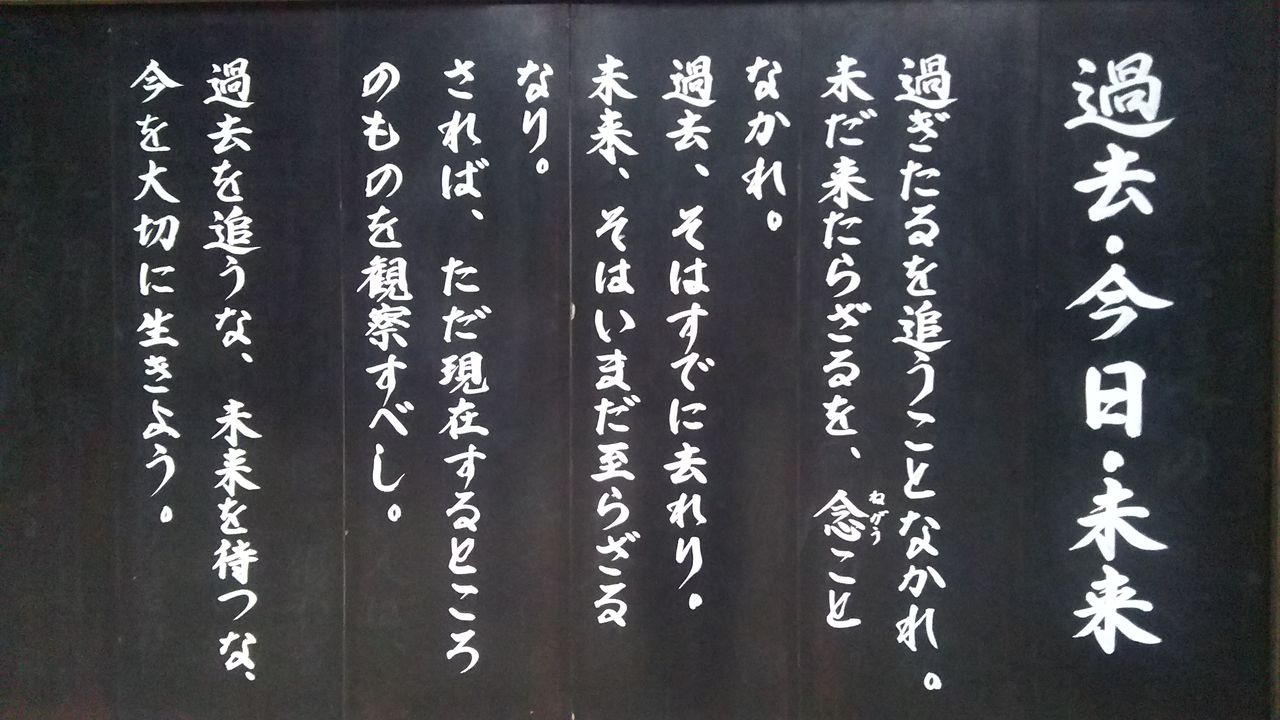 過去・今日・未来
過ぎたるを追うことなかれ。
未だ来たらざるを、念こと
ねがう
なかれ。
過去、そはすでに去れり。
未来、そはいまだ至らざる
なり。
されば、ただ現在するところ
のものを観察すべし。
過去を追うな、未来を待つな、
今を大切に生きよう。